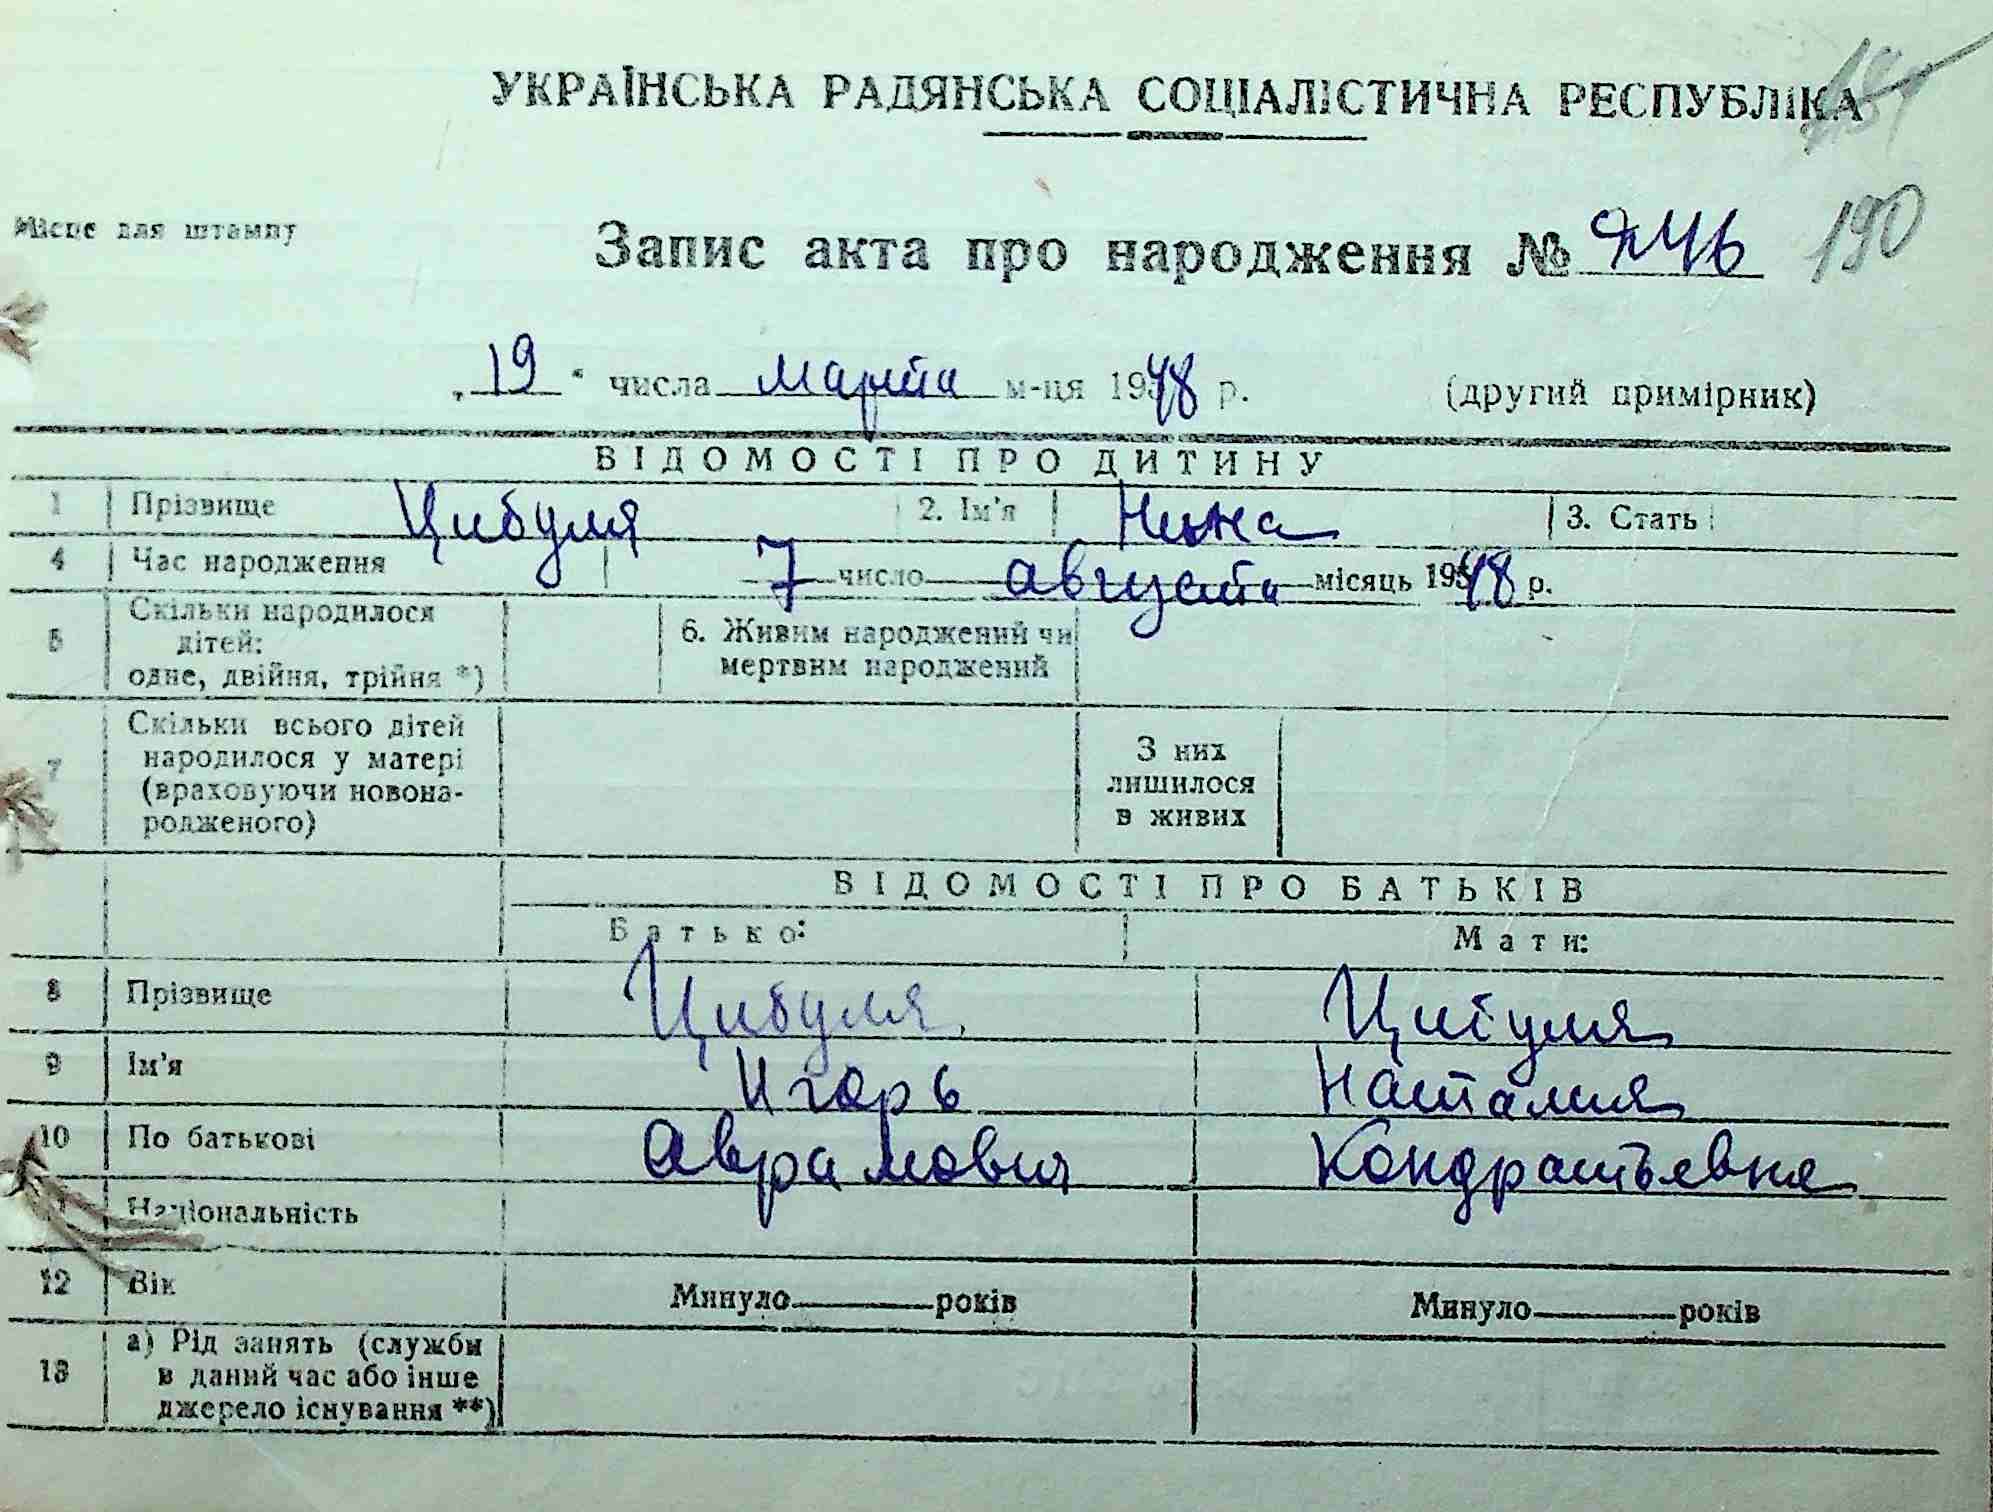 УКРАЇНСЬКА РАДЯНСЬКА СОЦІАЛІСТИЧНА РЕСПУБЛІКА
Місце для штампу
Запис акта про народження № 246 190
„19“ числа марта м-ця 1948 р. (другий примірник)
ВІДОМОСТІ ПРО ДИТИНУ
1 Прізвище Цибуля 2. Ім'я Нина 3. Стать
4 Час народження 7 число августа місяць 1948 р.
5 Скільки народилося дітей: одне, двійня, трійня *) 6. Живим народжений чи мертвим народжений
7 Скільки всього дітей народилося у матері (враховуючи новона-родженого) З них лишилося в живих
ВІДОМОСТІ ПРО БАТЬКІВ
Батько: Мати:
8 Прізвище Цибуля Цибуля
9 Ім'я Игорь Наталия
10 По батькові Аврамович Кондратьевна
11 Національність
12 Вік Минуло років Минуло років
13 а) Рід занять (служби в даний час або інше джерело існування **)